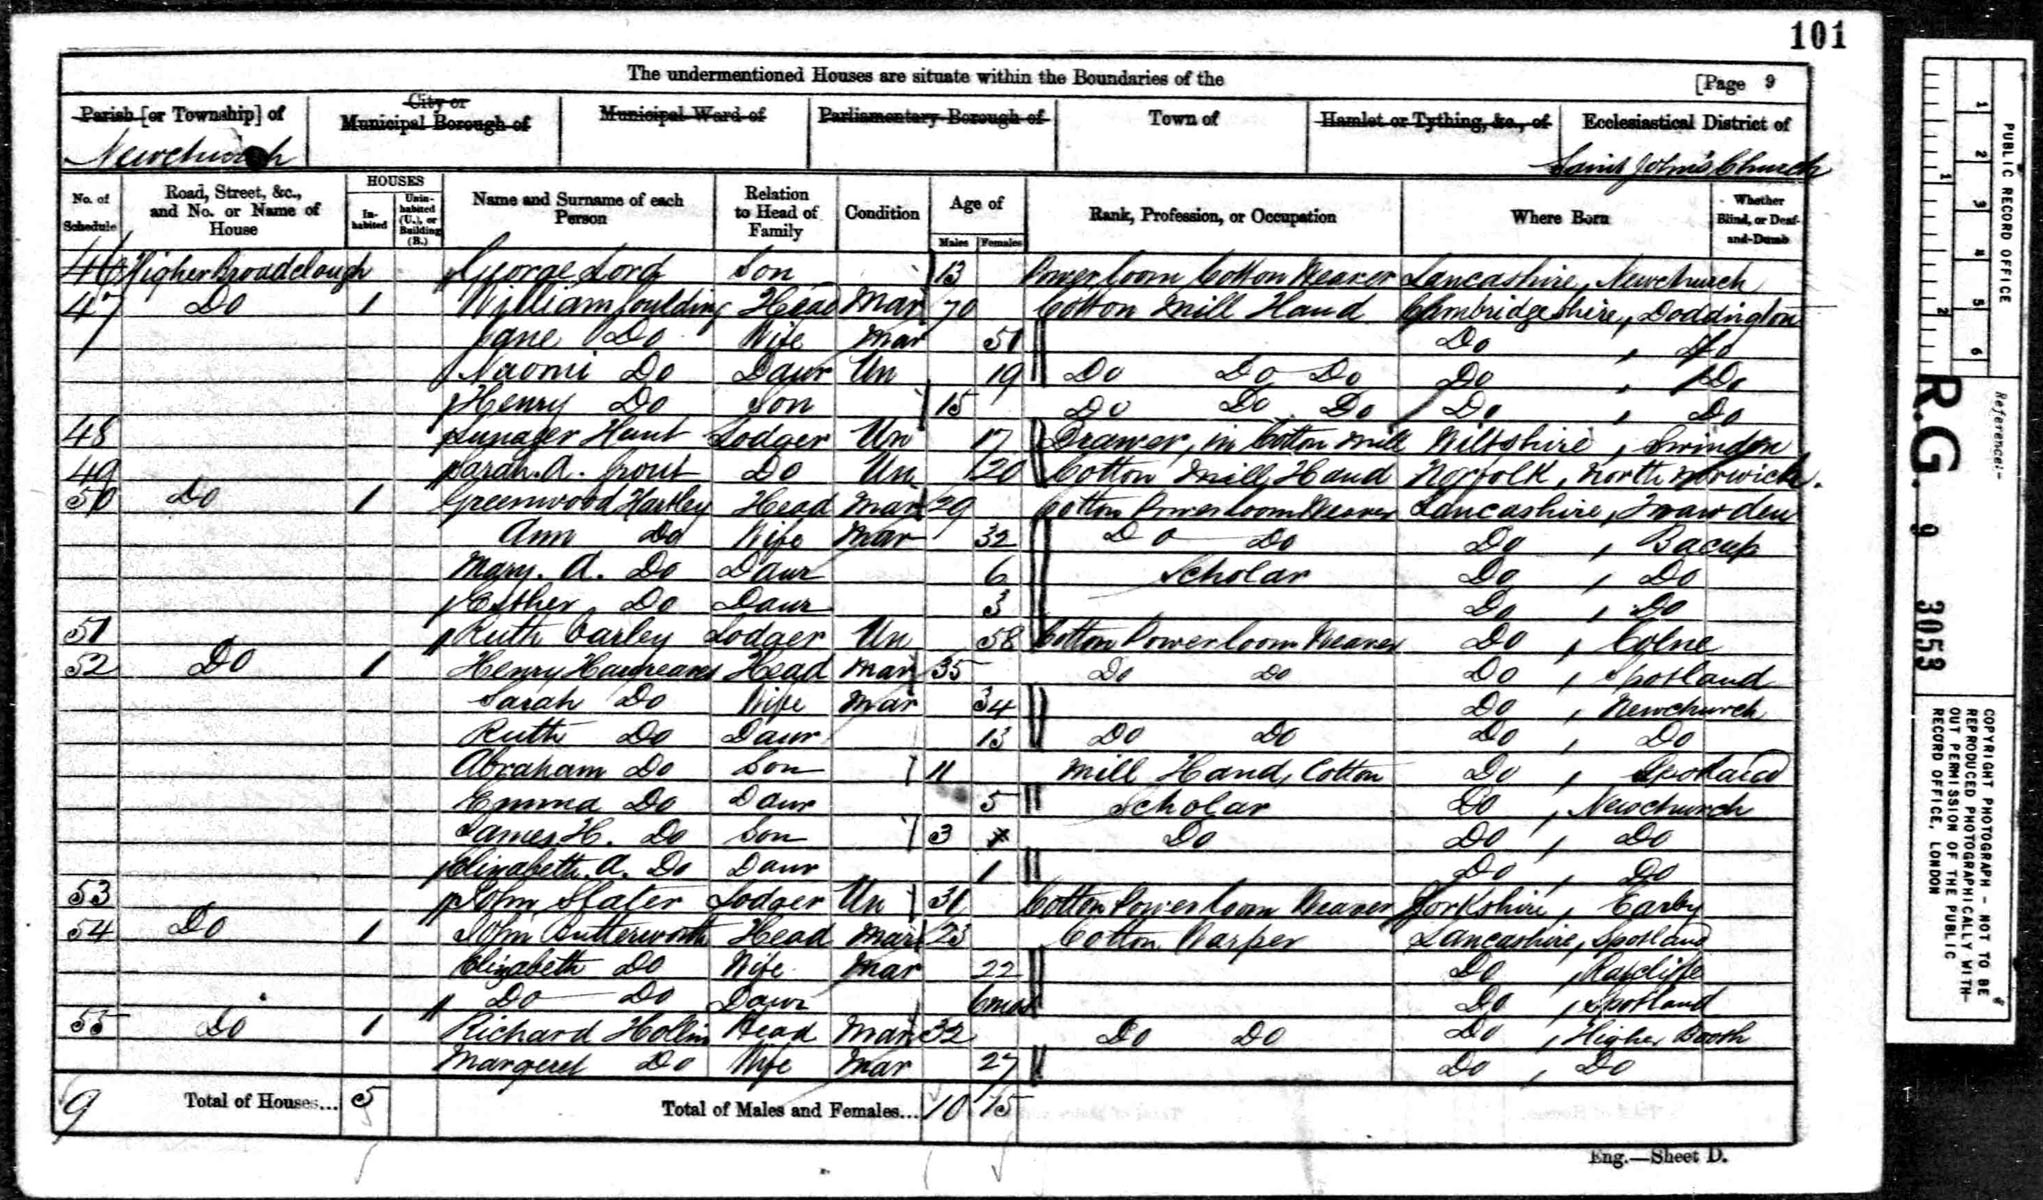 101
The undermentioned Houses are situate within the Boundaries of the [Page 9
Parish [or Township] of City or Municipal Borough of Municipal Ward of Parliamentary Borough of Town of Hamlet or Tything, &c., of Ecclesiastical District of
Newchurch Saint John's Church
No. of Schedule Road, Street, &c., and No. or Name of House HOUSES Inhabited Uninhabited (U.), or Building (B.) Name and Surname of each Person Relation to Head of Family Condition Age of Males Females Rank, Profession, or Occupation Where Born Whether Blind, or Deaf-and-Dumb
46 Higher Broadclough George Lord Son 13 Power loom Cotton Weaver Lancashire, Newchurch
47 Do 1 William Goulding Head Mar 70 Cotton Mill Hand Cambridgeshire, Doddington
Jane Do Wife Mar 51 Do, Do
Naomi Do Daur Un 19 Do Do Do Do, Do
Henry Do Son 15 Do Do Do Do, Do
48 Hunt Lodger Un 17 Drawer, in Cotton Mill Wiltshire, Swindon
49 Sarah. A. Do Un 20 Cotton Mill Hand Norfolk, North
50 Do 1 Greenwood Hartley Head Mar 29 Cotton Powerloom Weaver Lancashire, Trawden
Ann Do Wife Mar 32 Do Do Do, Bacup
Mary. A. Do Daur 6 Scholar Do, Do
Esther Do Daur 3 Do, Do
51 Ruth Varley Lodger Un 58 Cotton Powerloom Weaver Do, Colne
52 Do 1 Henry Hargreaves Head Mar 35 Do Do Do, Spotland
Sarah Do Wife Mar 34 Do, Newchurch
Ruth Do Daur 13 Do Do Do, Do
Abraham Do Son 11 Mill Hand, Cotton Do, Spotland
Emma Do Daur 5 Scholar Do, Newchurch
James H. Do Son 3 Do Do, Do
Elizabeth. A. Do Daur 1 Do, Do
53 John Slater Lodger Un 31 Cotton Powerloom Weaver Yorkshire, Earby
54 Do 1 John Butterworth Head Mar 23 Cotton Warper Lancashire, Spotland
Elizabeth Do Wife Mar 22 Do, Ratcliffe
Do Do Daur 6mos Do, Spotland
55 Do 1 Richard Hollin Head Mar 32 Do Do Do, Higher Booth
Margeret Do Wife Mar 27 Do, Do
9 Total of Houses... 5 Total of Males and Females... 10 15
Eng.—Sheet D.
PUBLIC RECORD OFFICE
1 2 3 4 5 6
1 2
Reference:-
R.G. 9 3053
COPYRIGHT PHOTOGRAPH - NOT TO BE
REPRODUCED PHOTOGRAPHICALLY WITH-
OUT PERMISSION OF THE PUBLIC
RECORD OFFICE, LONDON